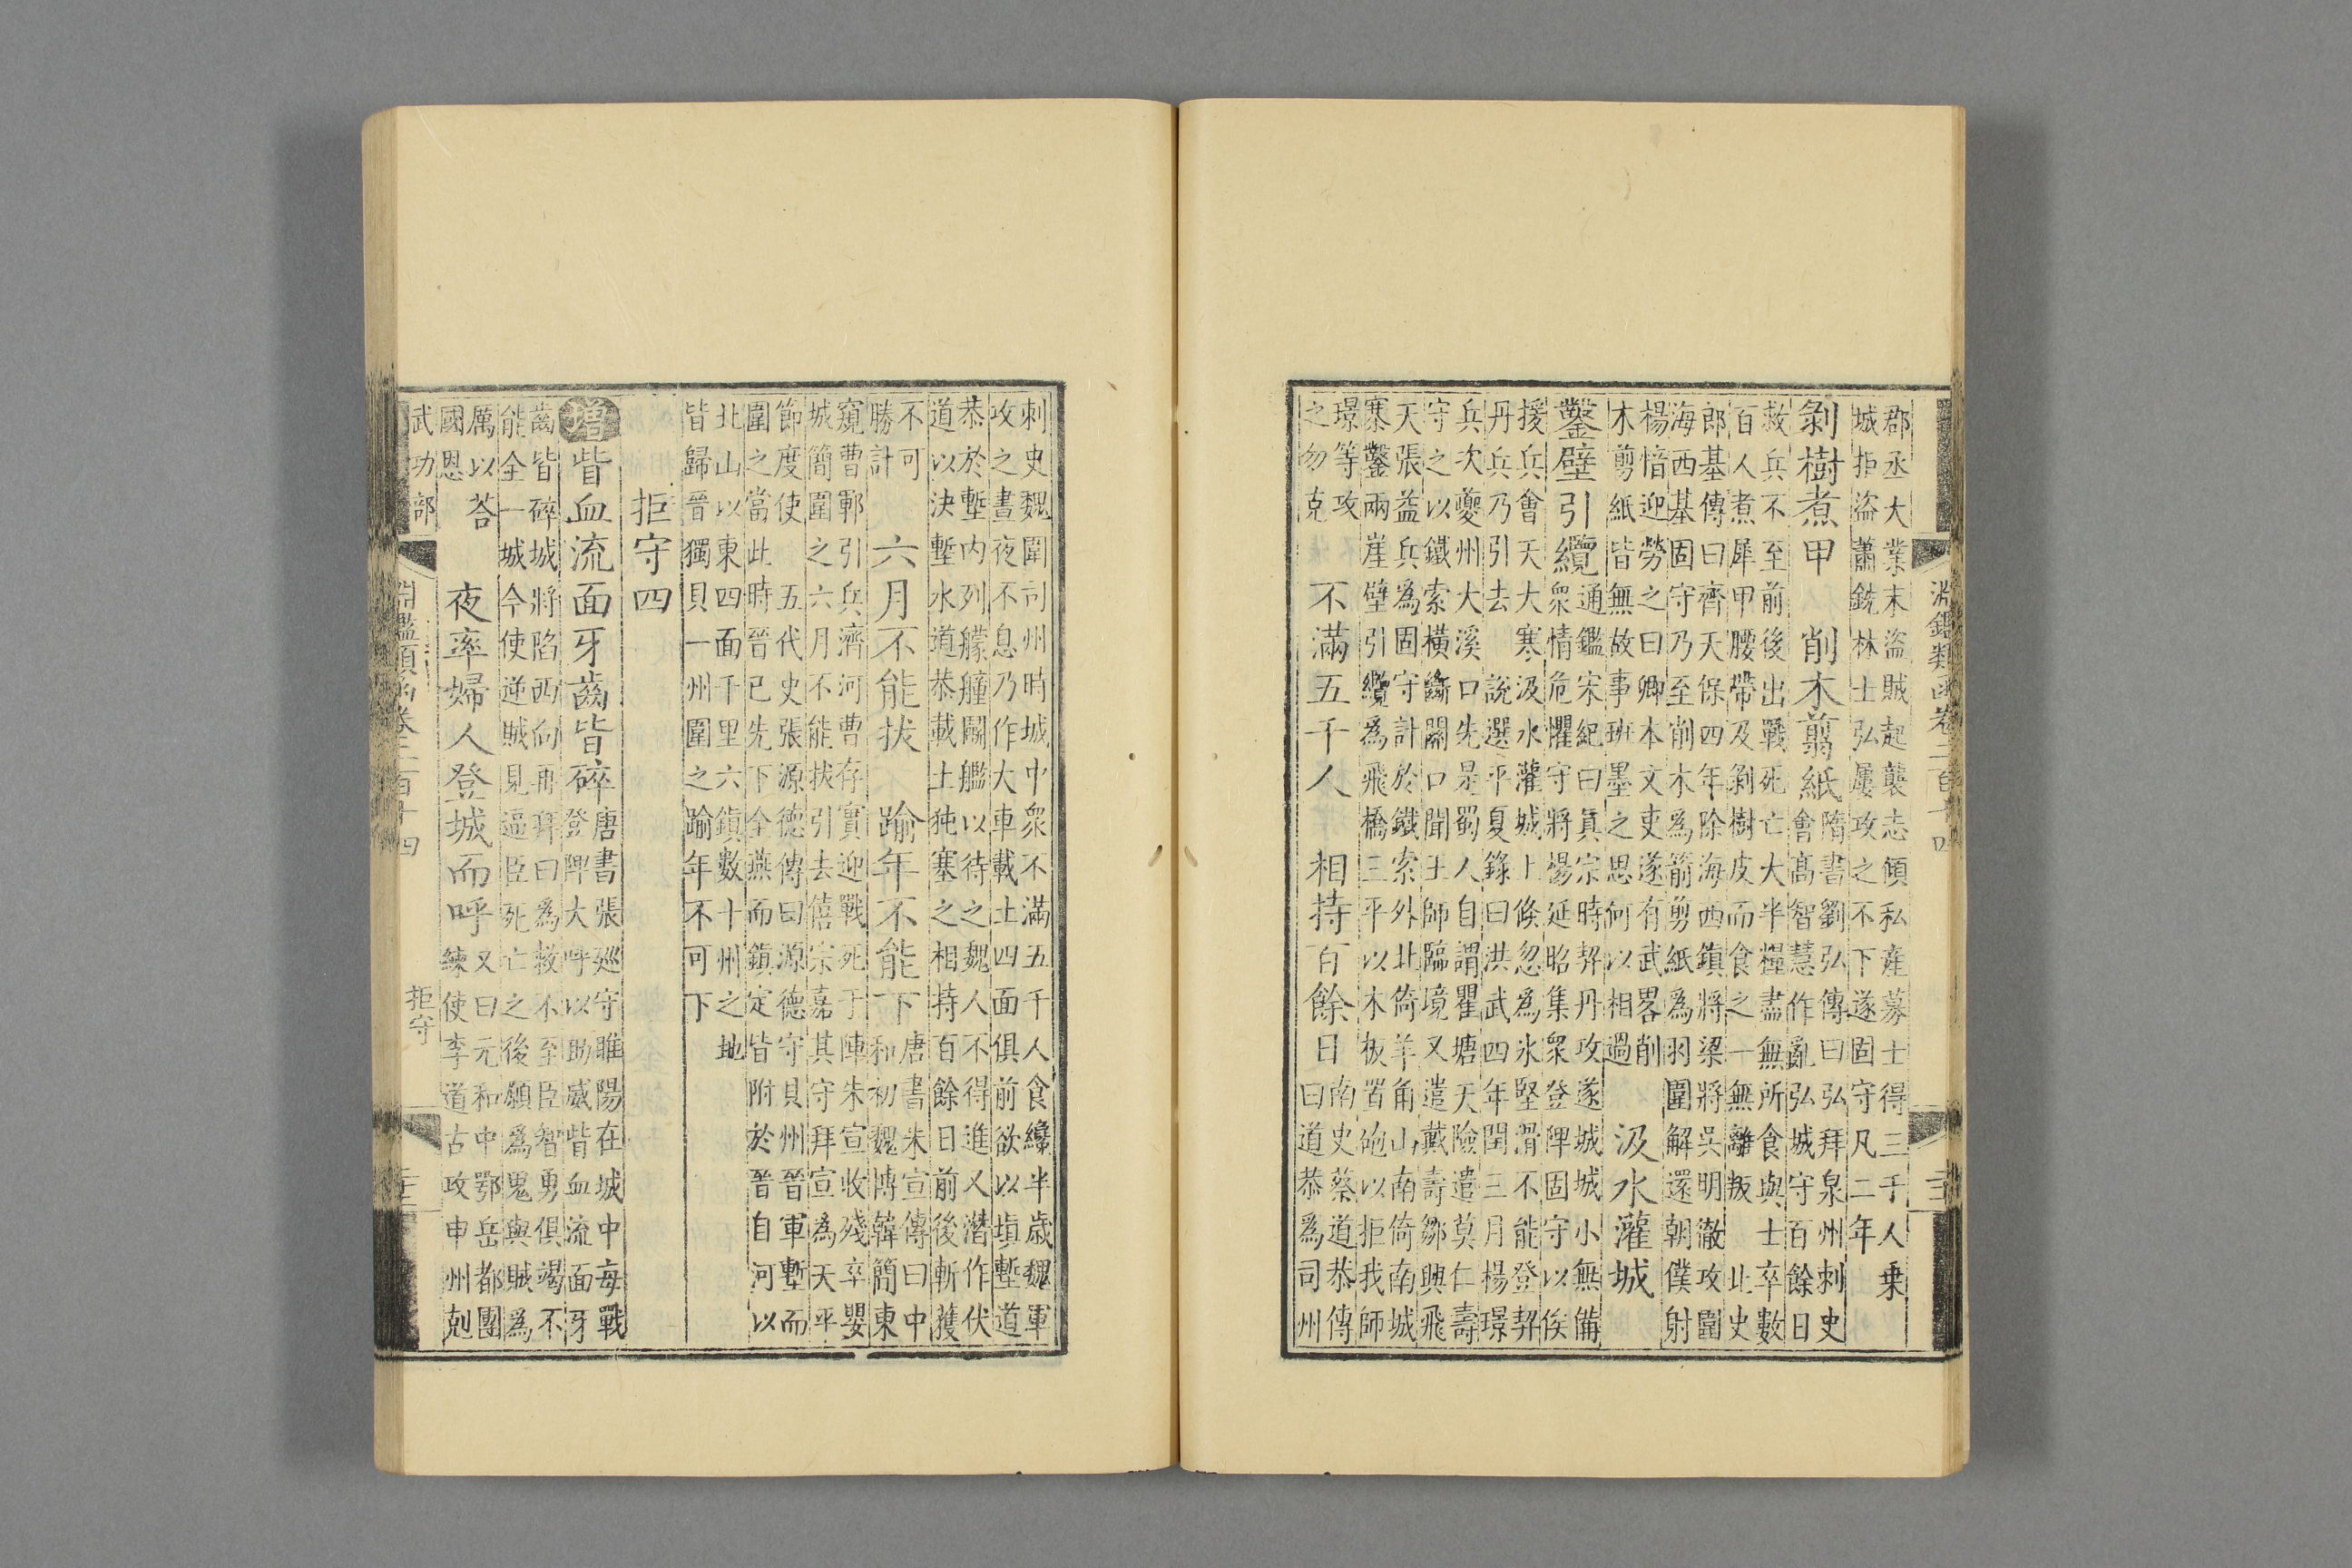 淵鑑類函卷二百十四
郡丞大業末盜賊起襲志傾私產募士得三千人乘
城拒盜蕭銑林士弘屢攻之不下遂固守凡二年
剝樹煮甲 削木翦紙
隋書劉弘傳曰弘拜泉州刺史
會高智慧作亂弘城守百餘日
救兵不至前後出戰死亡大半糧盡無所食與士卒數
百人煮犀甲腰帶及剝樹皮而食之一無離叛 北史
郎基傳曰齊天保四年除海西鎮將梁將吳明徹攻圍
海西基固守乃至削木為箭剪紙為羽圍解還朝僕射
楊愔迎勞之曰卿本文吏遂有武畧削
木剪紙皆無故事班墨之思何以相過
汲水灌城
鑿壁引纜
通鑑宋紀曰真宗時契丹攻遂城城小無備
衆情危懼守將楊延昭集衆登陴固守以俟
援兵會天大寒汲水灌城上倏忽為氷堅滑不能登契
丹兵乃引去 說選平夏錄曰洪武四年閏三月楊璟
兵次夔州大溪口先是蜀人自謂瞿塘天險遣莫仁壽
守之以鐵索橫斷關口聞王師臨境又遣戴壽鄒興飛
天張益兵為固守計於鐵索外北倚羊角山南倚南城
寨鑿兩崖壁引纜為飛橋三平以木板置砲以拒我師
璟等攻
之勿克
不滿五千人 相持百餘日
南史蔡道恭傳
曰道恭為司州
刺史魏圍司州時城中衆不滿五千人食纔半歲魏軍
攻之晝夜不息乃作大車載土四面俱前欲以塡塹道
恭於塹内列艨艟鬭艦以待之魏人不得進又潛作伏
道以決塹水道恭載土㹠塞之相持百餘日前後斬獲
不可
勝計
六月不能拔 踰年不能下
唐書朱宣傳曰中
和初魏博韓簡東
窺曹鄆引兵濟河曹存實迎戰死于陣朱宣收殘卒嬰
城簡圍之六月不能拔引去僖宗嘉其守拜宣為天平
節度使 五代史張源德傳曰源德守貝州晉軍塹而
圍之當此時晉已先下全燕而鎮定皆附於晉自河以
北山以東四面千里六鎮數十州之地
皆歸晉獨貝一州圍之踰年不可下
拒守四
增 眥血流面牙齒皆碎
唐書張巡守睢陽在城中每戰
登陴大呼以助威眥血流面牙
齒皆碎城將陷西向再拜曰為救不至臣智勇俱竭不
能全一城今使逆賊見逼臣死亡之後願為鬼與賊為
厲以荅
國恩
夜率婦人登城而呼
又曰元和中鄂岳都團
練使李道古攻申州剋
武功部
淵鑑類函卷二百十四
拒守